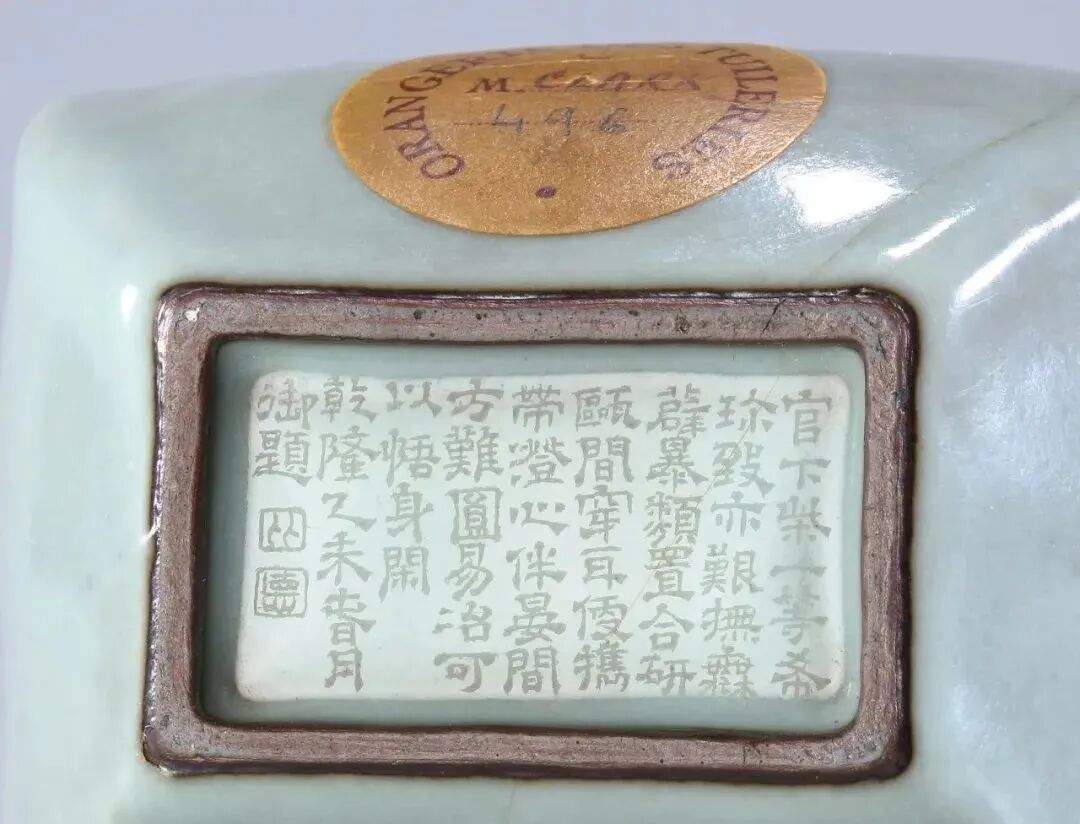 ORANGERIE TUILERIES
M. CLARK
496
官下柴一等希
珎致亦艱撫無
薜暴類置合研
甌間穿耳便攜
帶澄心伴晏間
方難圓易治可
以悟身閑
乾隆乙未春月
御題
比
德